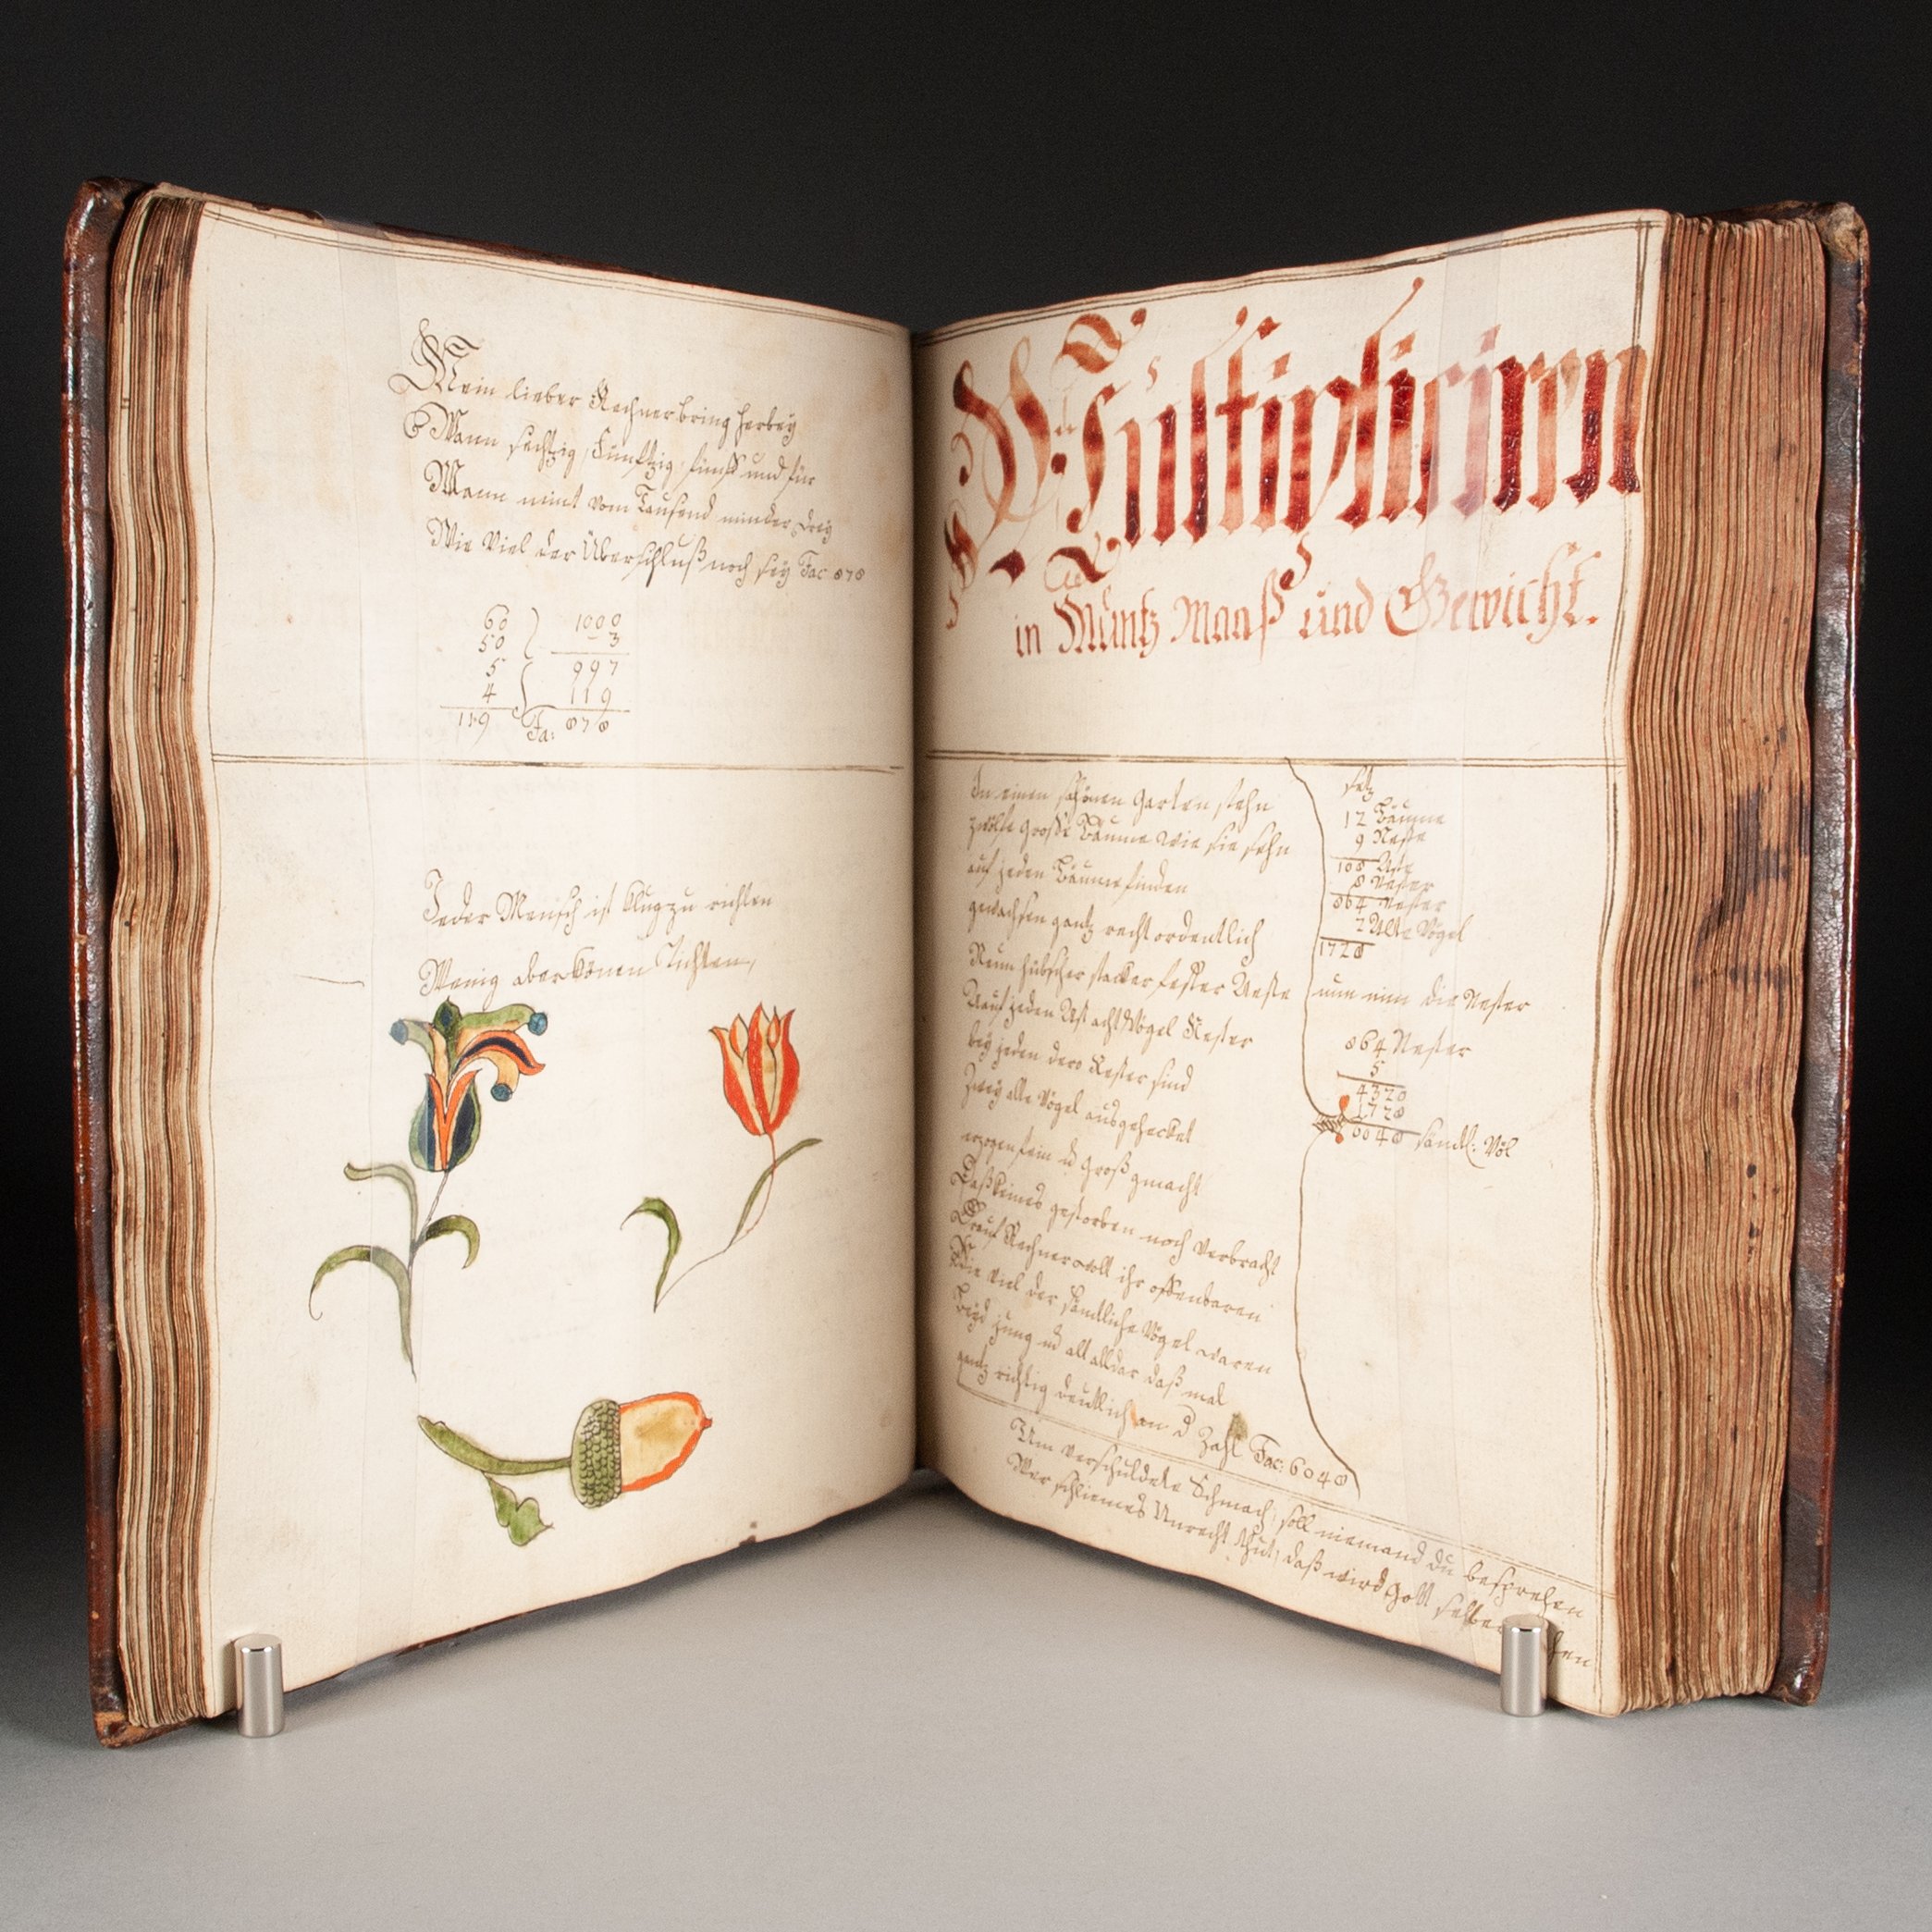 Mein lieber Rechner bring herbey
Wann sechtzig, Funftzig, fünff und für
Mann nimt vom Tausend minder drey
Wie Viel der Überschluß noch sey Fac 878
60 1000
50 3
5 997
4 119
119 Fa: 878
Jeder Mensch ist klug zu richten
Wenig aber könen Tichten,
Multipliciren
in Müntz Maaß und Gewicht.
In einen schönen Garten stehn
zwölff große Bäume wie sie sehn
auf jeden Bäume finden
gewachsen gantz recht ordentlich
Neun hübscher starcker fester Aeste
Auf jeden Ast acht Vögel Nester
bey jeden dero Nester sind
Zwey alte Vögel ausgehecket
erzogen fein u groß gmacht
Daß keines gestorben noch verbracht
Drauf Rechner wolt ihr offenbaren
Wie viel der sämtliche Vögel waren
Beyd jung ud alt alldar daß mal
gantz richtig deutlich an d Zahl Fac: 6048
setz
12 Bäume
9 Aeste
108 Äste
8 Nester
864 Nester
2 Alte Vögel
1728
nun nim die Nester
864 Nester
5
4320
1728
6048 sämtl: Völ
Um verschuldete Schmach, soll niemand du besprehen
Wer schlimes Unrecht thut, daß wird Gott selber